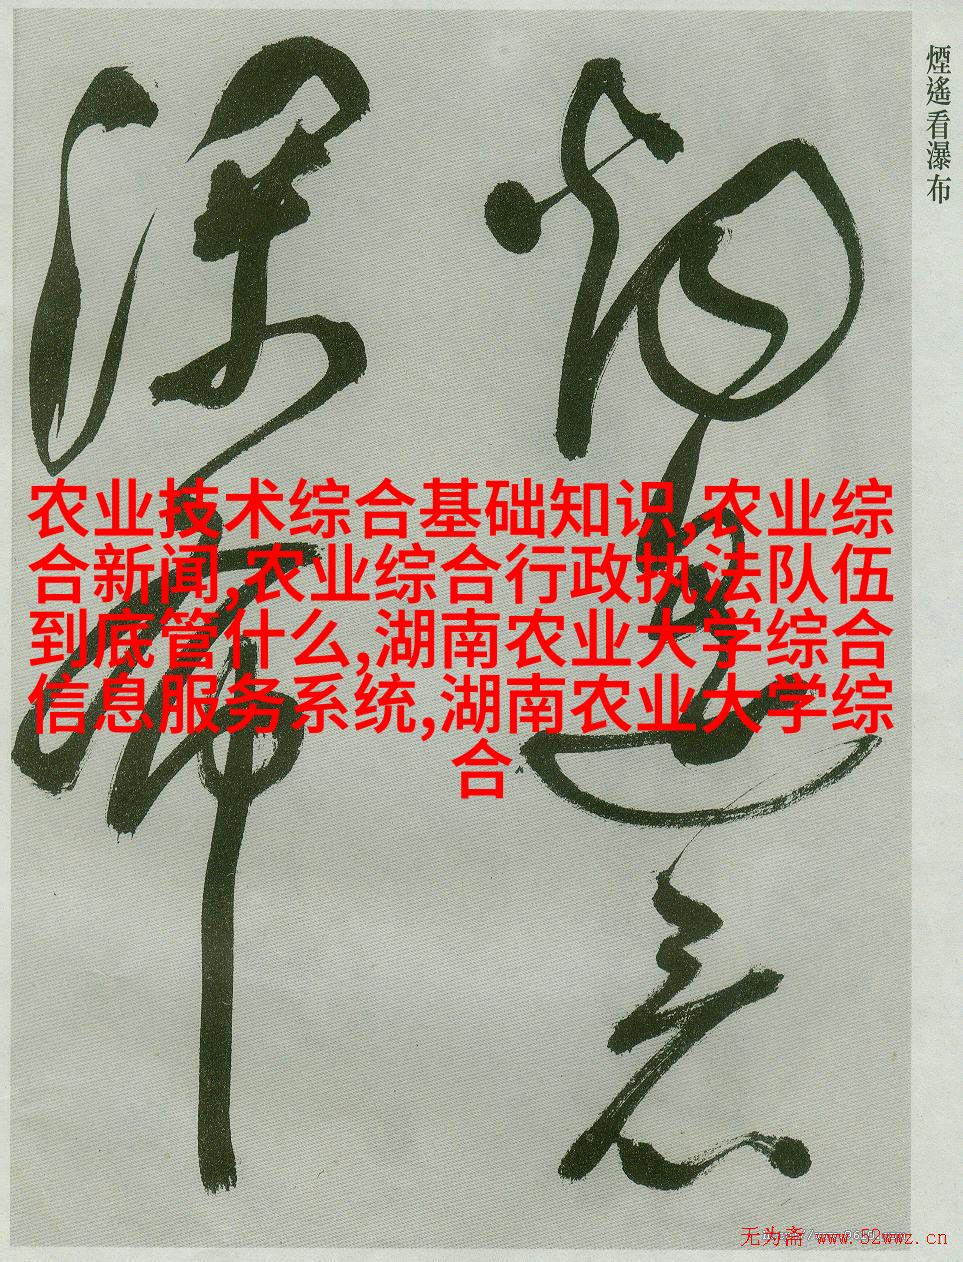 煙遙看瀑布
农业技术综合基础知识,农业综
合新闻,农业综合行政执法队伍
到底管什么,湖南农业大学综合
信息服务系统,湖南农业大学综
合
无为斋 www.52wwz.cn